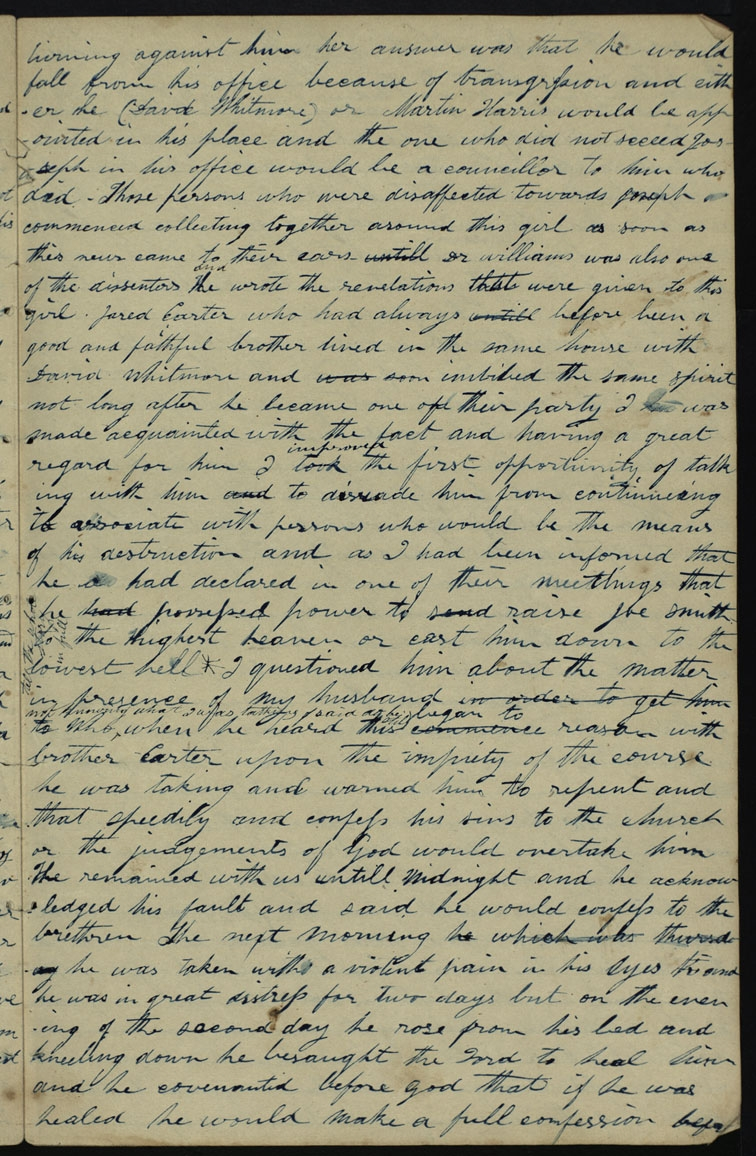 turning against him her answer was that he would
fall from his office because of transgression and eith
-er he (David Whitmore) or Martin Harris would be app
-ointed in his place and the one who did not succeed Jos-
-seph in his office would be a councillor to him who
did - Those persons who were disaffected towards joseph
commenced collecting together around this girl as soon as
this news came to their ears untill dr williams was also one
of the dissenters and He wrote the revelations that were given to this
girl. Jared Carter who had always untill before been a
good and faithful brother lived in the same house with
David Whitmore and was soon imbibed the same spirit
not long after he became one of their party I was
made acquainted with the fact and having a great
regard for him I took improved the first opportunity of talk
ing with him and to dissuade him from continueing
to associate with persons who would be the means
of his destruction and as I had been informed that
he had declared in one of their meetings that
he had possessed power to send raise Joe Smith
to the highest heaven or cast him down to the
lowest hell * I questioned him about the matter
in presence of my husband in order to get him
to who when he heard this commence began to reason with
brother Carter upon the impiety of the course
he was taking and warned him to repent and
that speedily and confess his sins to the church
or the judgements of God would overtake him
He remained with us untill midnight and he acknow
-ledged his fault and said he would confess to the
brethren The next morning he which was thursd
-ay he was taken with a violent pain in his eyes and
he was in great distress for two days but on the even
-ing of the second day he rose from his bed and
kneeling down he besaught the Lord to heal him
and he covenantid before god that if he was
healed he would make a full confession befor